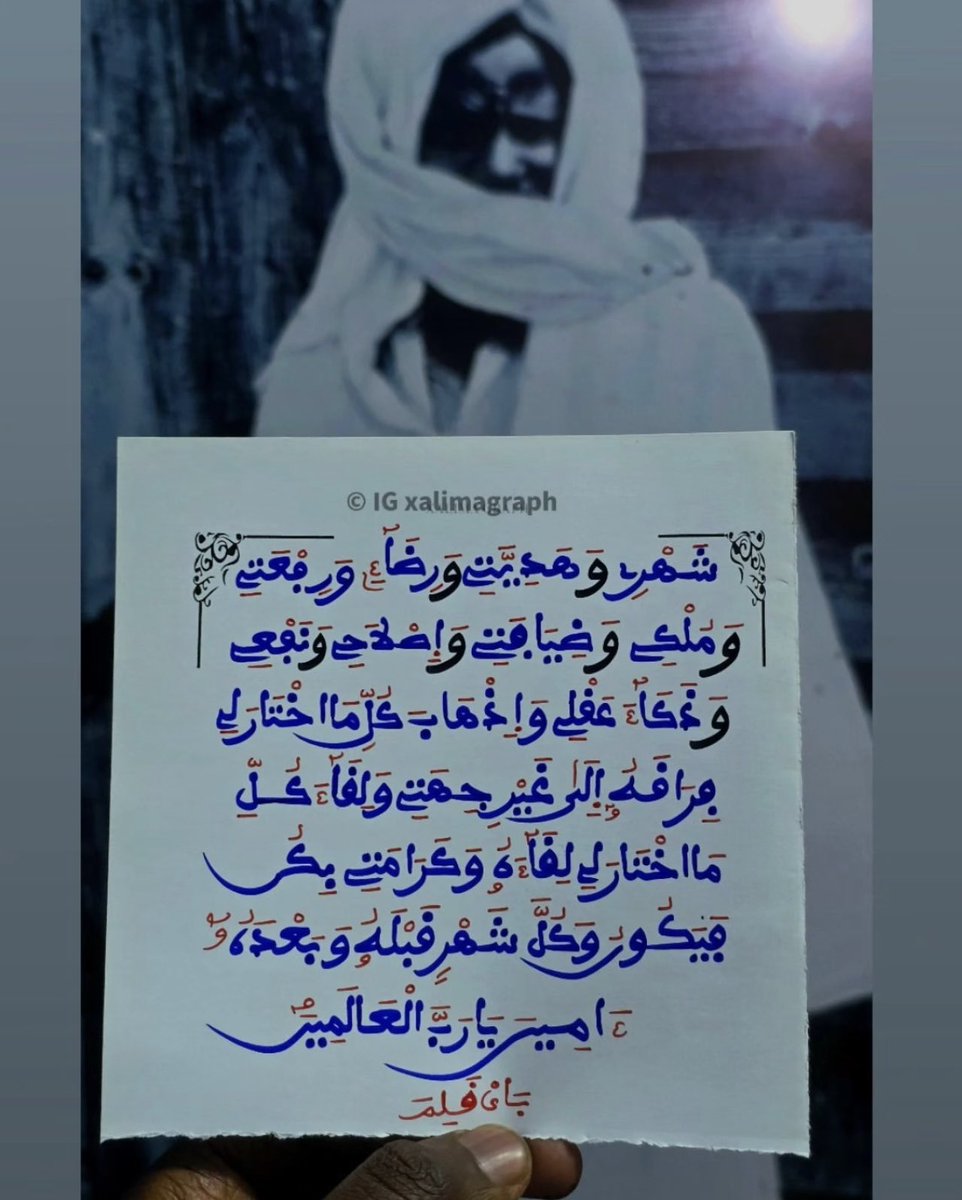 © IG xalimagraph
شَهْرِ وَهَدِيَّتِي وَرِضَاءِ وَرِفْعَتِي
وَمُلْكِي وَضِيَافَتِي وَإِصْلَاحِي وَنَفْعِي
وَذَكَاءَ عَقْلِي وَإِذْهَابَ كُلِّ مَا اخْتَارَ لِي
فِرَاقَهُ إِلَىٰ غَيْرِ جِهَتِي وَلِقَاءَ كُلِّ
مَا اخْتَارَ لِي لِقَاءَهُ وَكَرَامَتِي بِكُن
فَيَكُونُ وَكُلَّ شَهْرٍ قَبْلَهُ وَبَعْدَهُ
ءَامِين يَا رَبَّ الْعَالَمِينَ